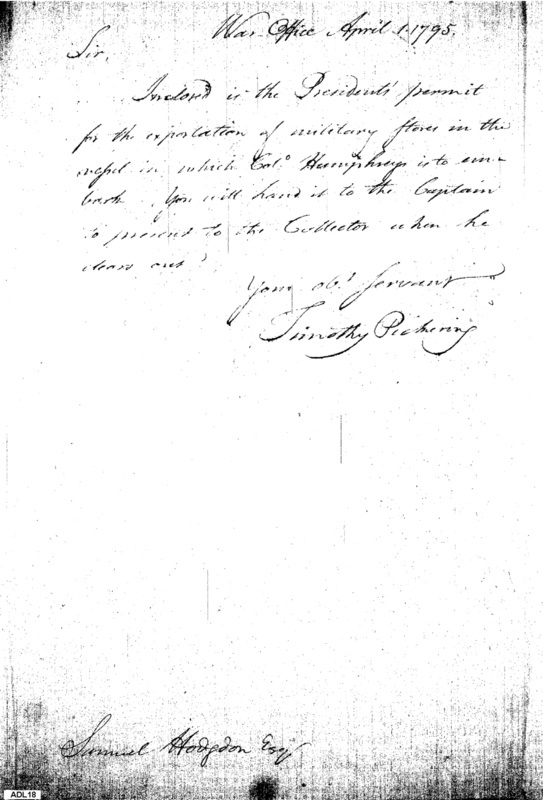 War Office April 1. 1795.
Sir,
Inclosed is the Presidents' permit
for the exportation of military stores in the
vessel in which Col.o Humphreys is to em-
bark. You will hand it to the Captain
to present to the Collector when he
clears out.
Your ob.t servant
Timothy Pickering
Samuel Hodgdon Esq
ADL18